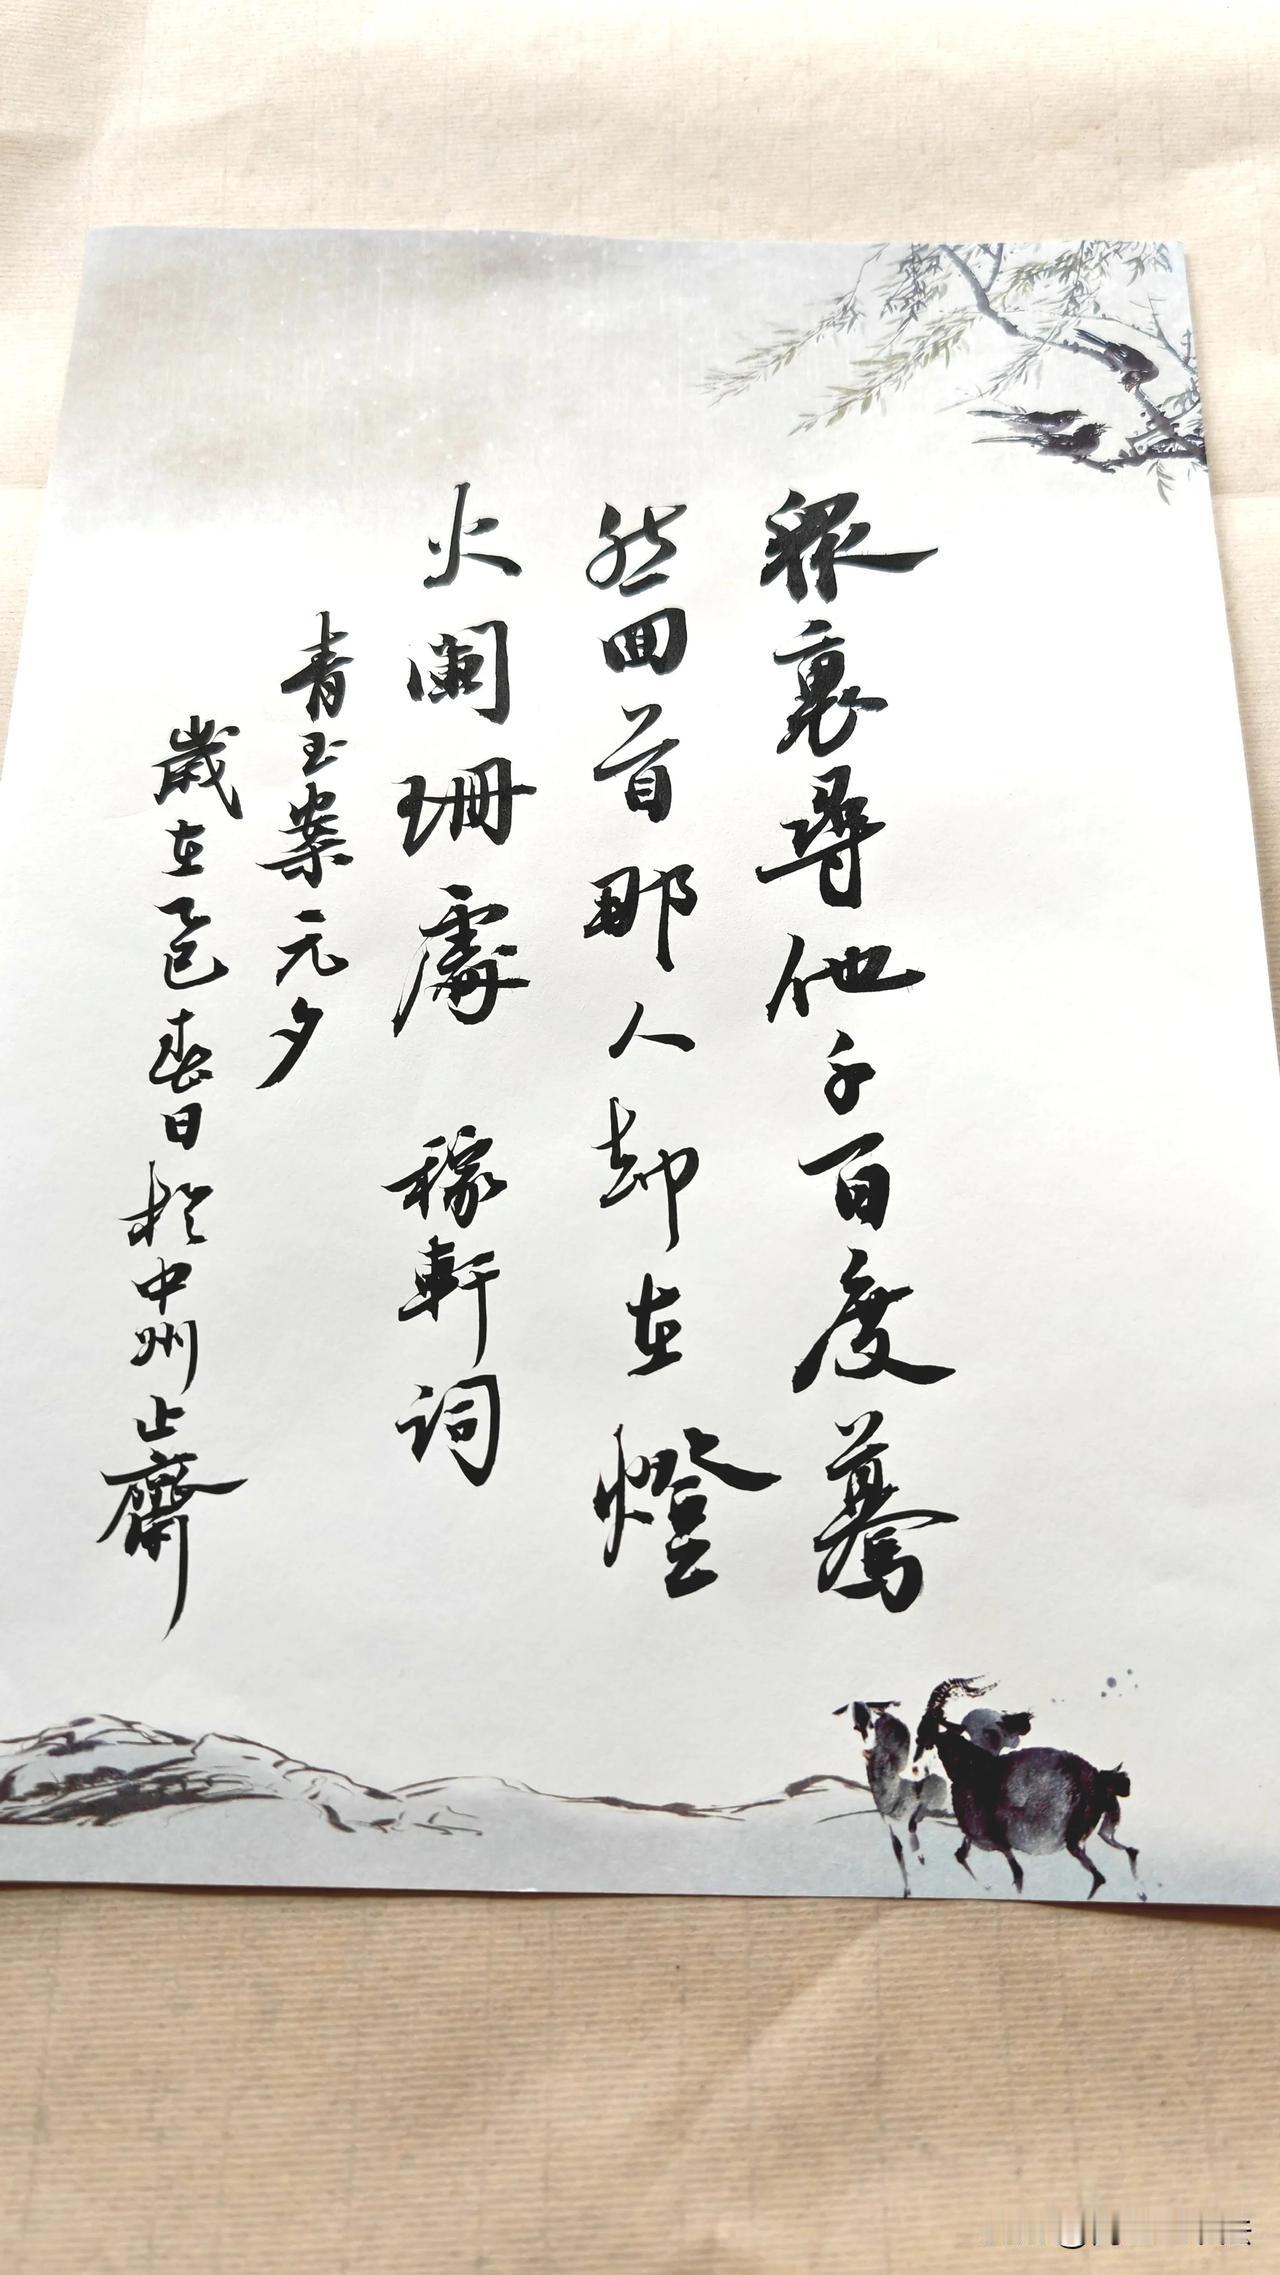 眾裏尋他千百度驀
然回首那人却在燈
火闌珊處 稼軒詞
青玉案元夕
歲在乙巳春日於中州止齋